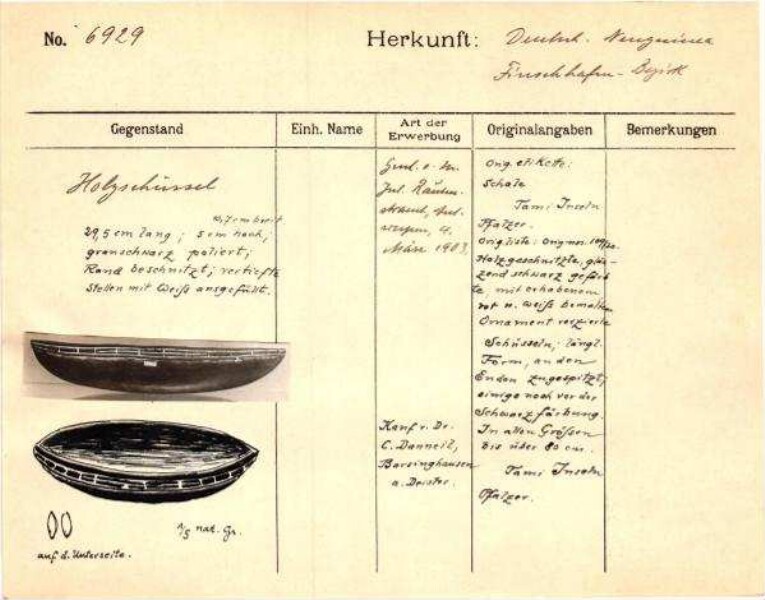 No. 6929
Herkunft: Deutsch. Neuguinea
Finschhafen-Bezirk
Gegenstand
Einh. Name
Art der
Erwerbung
Originalangaben
Bemerkungen
Holzschüssel
breit
29,5 cm lang; 5 cm hoch;
grauschwarz poliert;
Rand beschnitzt; vertiefte
Stellen mit Weiß ausgefüllt.
1/5 nat. Gr.
auf d. Unterseite.
März 1903.
Kauf v. Dr.
C. Danneil,
Barsinghausen
a. Deister.
Orig. etikette:
Schale
Tami Inseln
Pfalzer.
Orig liste: Orig nr.
Holzgeschnitzte, glän-
zend schwarz gefärb
te mit erhabenem
rot u. weiß bemalten
Ornament verzierte
Schüsseln, längl.
Form, an den
Enden zugespitzt,
einige noch vor der
Schwarzfärbung.
In allen Größen
bis über 80 cm.
Tami Inseln
Pfalzer.